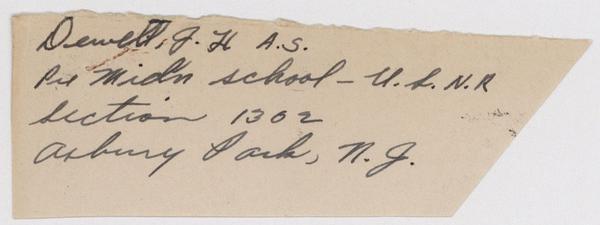 Dewett, J. H A.S.
Pre Midn school - U.S.N.R
Section 1302
Asbury Park, N.J.